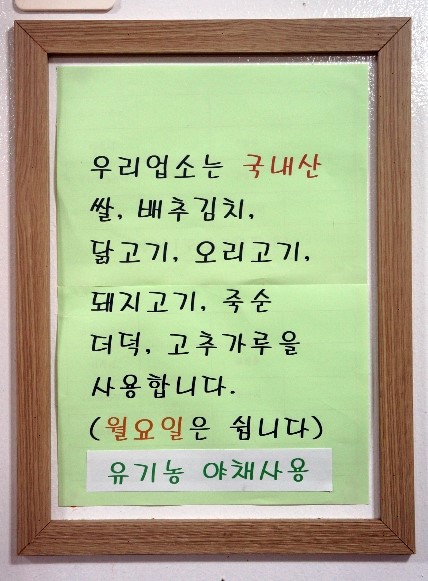 우리업소는 국내산
쌀, 배추김치,
닭고기, 오리고기,
돼지고기, 죽순
더덕, 고추가루을
사용합니다.
(월요일은 쉽니다)
유기농 야채사용